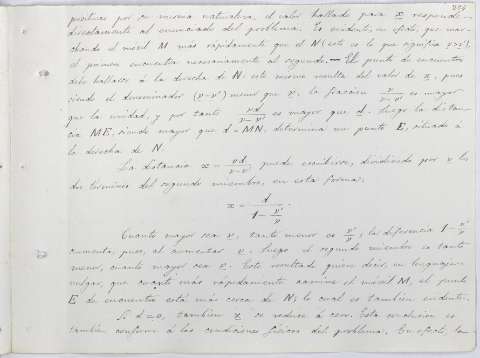 positivas por su misma naturaleza, el valor hallado para x responde
directamente al enunciado del problema. Es evidente, en efecto, que mar-
chando el móvil M más rápidamente que el N (esto es lo que significa v>v'),
el primero encuentra necesariamente al segundo. — El punto de encuentro
debe hallarse á la derecha de N: esto mismo resulta del valor de x, pues
siendo el denominador (v-v') menor que v, la fracción v/(v-v') es mayor
que la unidad, y por tanto vd/(v-v') es mayor que d. Luego la distan-
cia ME, siendo mayor que d=MN, determina un punto E, situado á
la derecha de N.
La distancia x = vd/(v-v') puede escribirse, dividiendo por v los
dos términos del segundo miembro, en esta forma:
x = d/(1 - v'/v)
Cuanto mayor sea v, tanto menor es v'/v; la diferencia 1 - v'/v
aumenta, pues, al aumentar v. Luego el segundo miembro es tanto
menor, cuanto mayor sea v. Este resultado quiere decir, en lenguaje
vulgar, que cuanto más rápidamente camine el móvil M, el punto
E de encuentro está más cerca de N; lo cual es tambien evidente.
Si d=0, tambien x se reduce á cero. Esta conclusion es
tambien conforme á las condiciones físicas del problema. En efecto, la